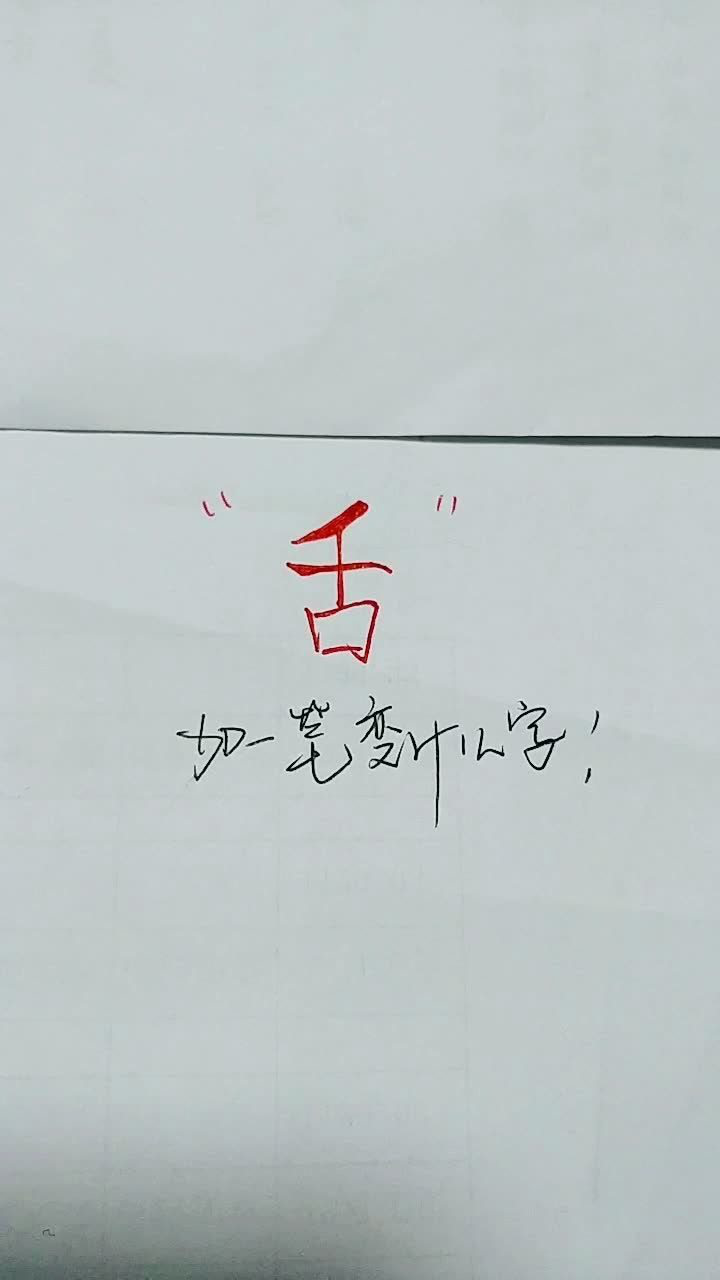 “舌”
加一笔变什么字！